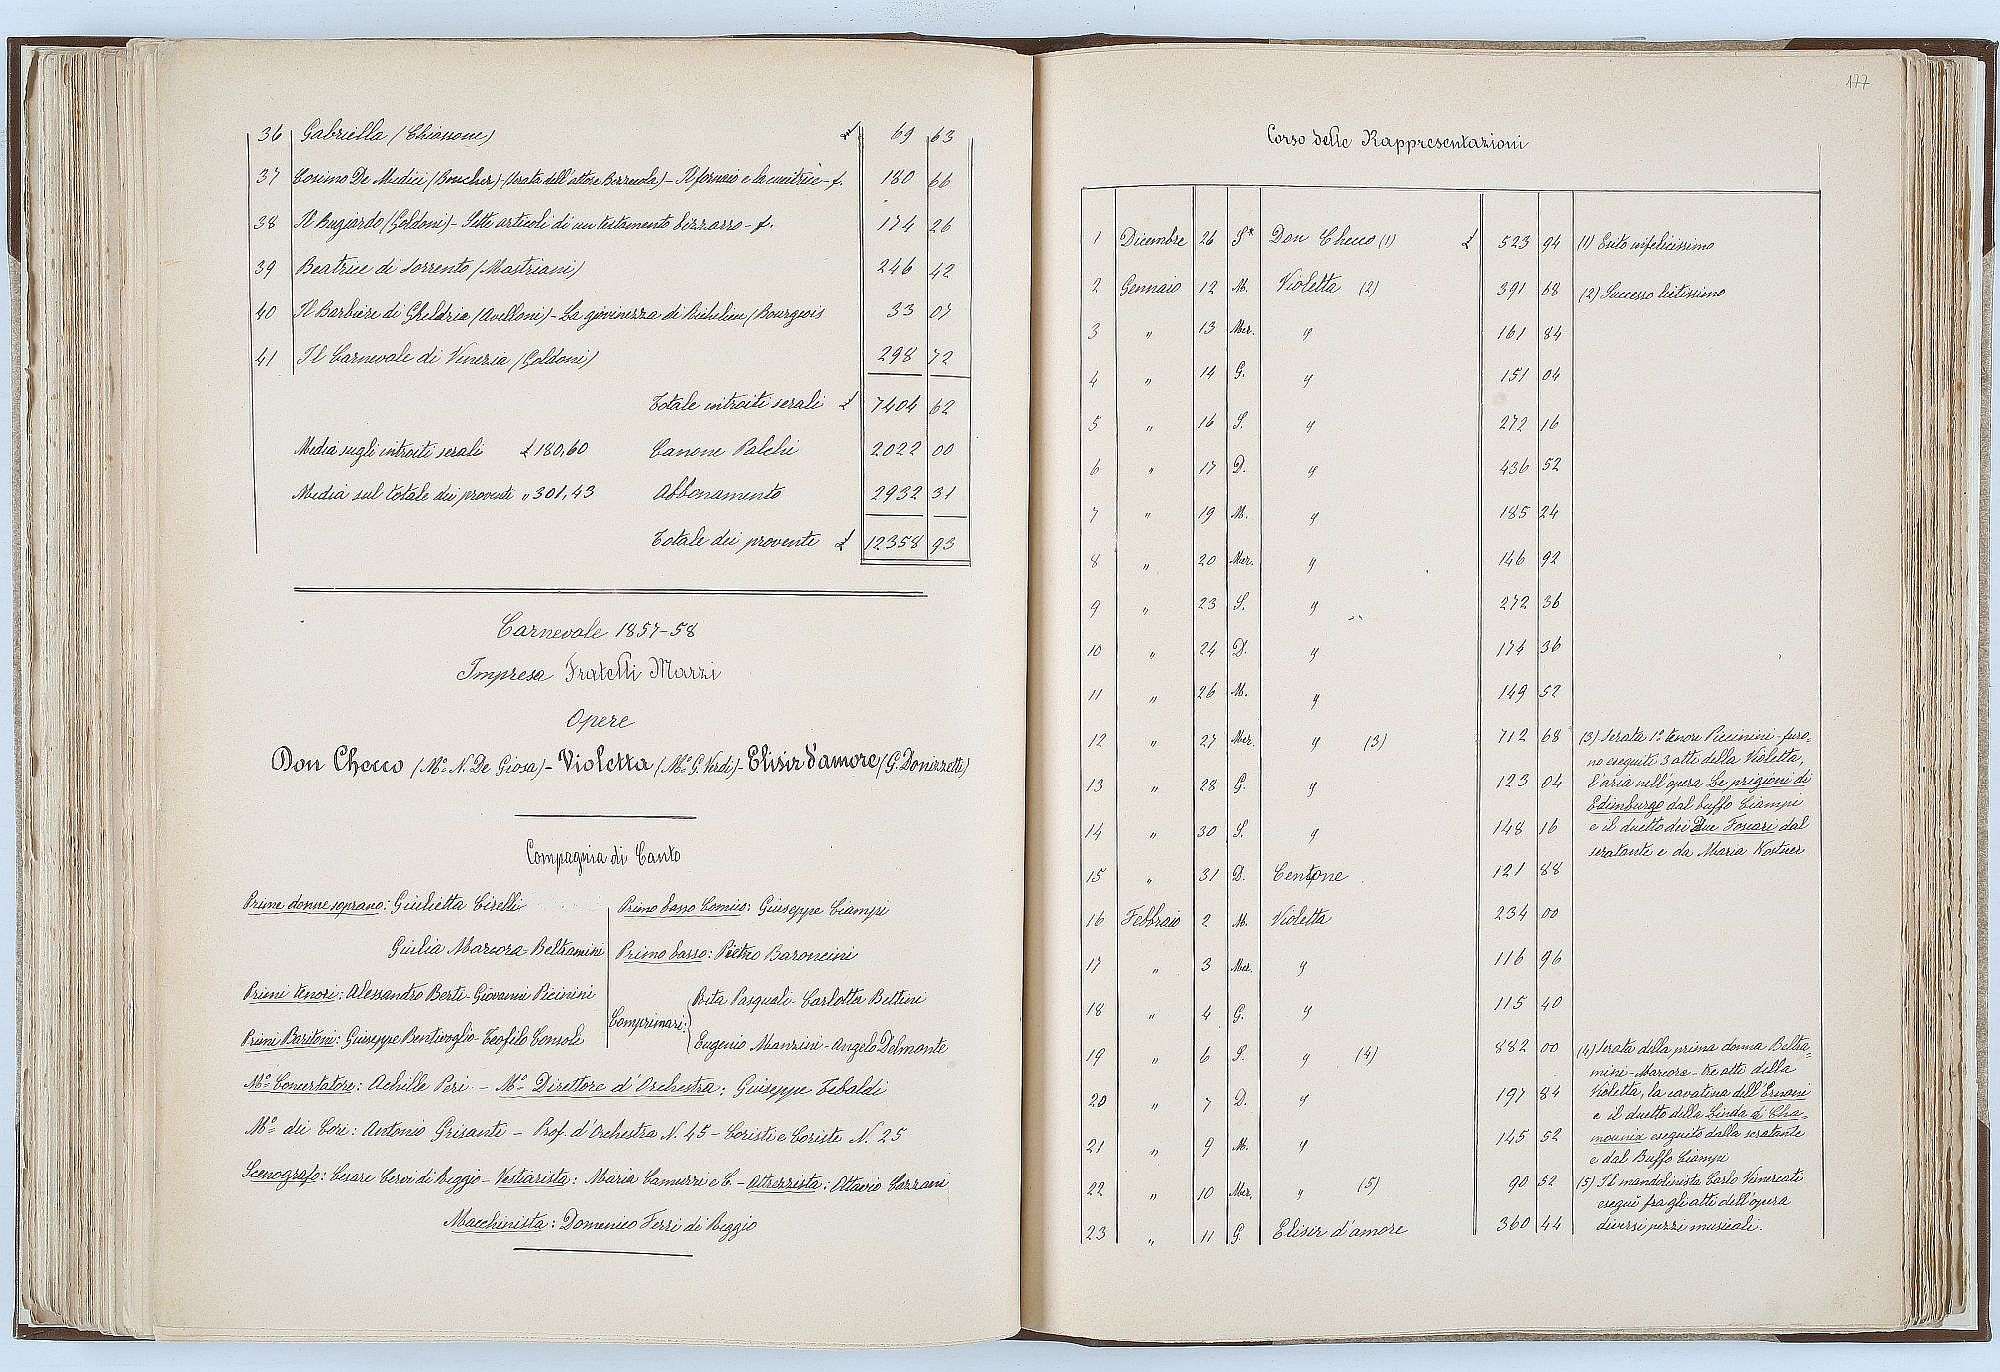 36 Gabriella (Chiossone) £ 69 63
37 Cosimo De Medici (Boucher) - (serata dell'attore Bozzuola) - Il fornaio e la cucitrice - f. 180 66
38 Il Bugiardo (Goldoni) - Sette articoli di un testamento bizzarro - f. 174 26
39 Beatrice di Sorrento (Mastriani) 246 42
40 Il Barbiere di Gheldria (Avelloni) - La giovinezza di Richelieu (Bourgeois 33 07
41 Il Carnevale di Venezia (Goldoni) 298 72
Totale introiti serali £ 7404 62
Media sugli introiti serali £ 180,60 Canone Palchi 2022 00
Media sul totale dei proventi „ 301,43 Abbonamento 2932 31
Totale dei proventi £ 12358 93
Carnevale 1857-58
Impresa Fratelli Marzi
Opere
Don Checco (Mo. N. De Giosa) - Violetta (Mo. G. Verdi) - Elisir d'amore (G. Donizzetti)
Compagnia di Canto
Prime donne soprano: Giulietta Cirelli
Giulia Marcora-Beltramini
Primi tenori: Alessandro Berti - Giovanni Piccinini
Primi Baritoni: Giuseppe Bentivoglio - Teofilo Console
Primo basso Comico: Giuseppe Ciampi
Primo basso: Pietro Baroncini
Comprimari: Rita Pasquali - Carlotta Bettini
Eugenio Manzini - Angelo Delmonte
Mo. Concertatore: Achille Peri - Mo. Direttore d'Orchestra: Giuseppe Tebaldi
Mo. dei Cori: Antonio Grisanti - Prof. d'Orchestra N. 45 - Coristi e Coriste N. 25
Scenografo: Cesare Cervi di Reggio - Vestiarista: Maria Camurri e C. - Attrezzista: Ottavio Cazzani
Macchinista: Domenico Ferri di Reggio
177
Corso delle Rappresentazioni
1 Dicembre 26 S* Don Checco (1) £ 523 94 (1) Esito infelicissimo
2 Gennaio 12 M. Violetta (2) 391 68 (2) Successo lietissimo
3 „ 13 Mer. „ 161 84
4 „ 14 G. „ 151 04
5 „ 16 S. „ 272 16
6 „ 17 D. „ 436 52
7 „ 19 M. „ 185 24
8 „ 20 Mer. „ 146 92
9 „ 23 S. „ 272 36
10 „ 24 D. „ 174 36
11 „ 26 M. „ 149 52
12 „ 27 Mer. „ (3) 712 68 (3) Serata 1° tenore Piccinini - furo-
no eseguiti 3 atti della Violetta,
13 „ 28 G. „ 123 04 l'aria nell'opera Le prigioni di
Edimburgo dal buffo Ciampi
14 „ 30 S. „ 148 16 e il duetto dei Due Foscari dal
seratante e da Maria Kostner
15 „ 31 D. Centone 121 88
16 Febbraio 2 M. Violetta 234 00
17 „ 3 Mer. „ 116 96
18 „ 4 G. „ 115 40
19 „ 6 S. „ (4) 882 00 (4) Serata della prima donna Beltra-
mini-Marcora - tre atti della
20 „ 7 D. „ 197 84 Violetta, la cavatina dell'Ernani
e il duetto della Linda di Cha-
21 „ 9 M. „ 145 52 mounix eseguito dalla seratante
e dal Buffo Ciampi
22 „ 10 Mer. „ (5) 90 52 (5) Il mandolinista Carlo Venercati
eseguì fra gli atti dell'opera
23 „ 11 G. Elisir d'amore 360 44 diversi pezzi musicali.